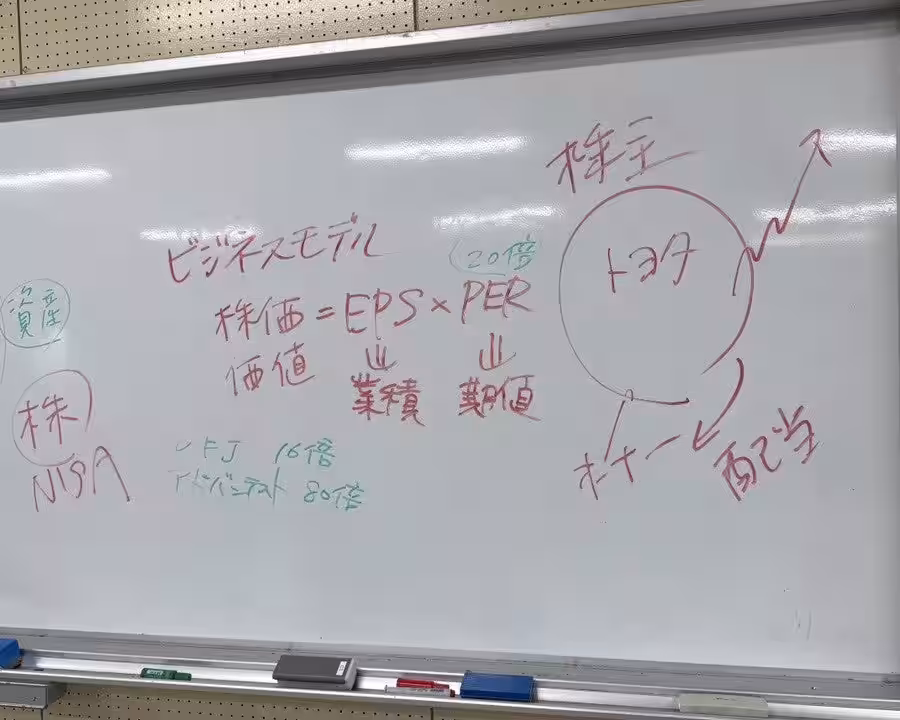 資産
株
NISA
ビジネスモデル
20倍
株価=EPS×PER
価値
業績
期値
UFJ 16倍
アドバンテスト 80倍
株主
トヨタ
オーナー
配当